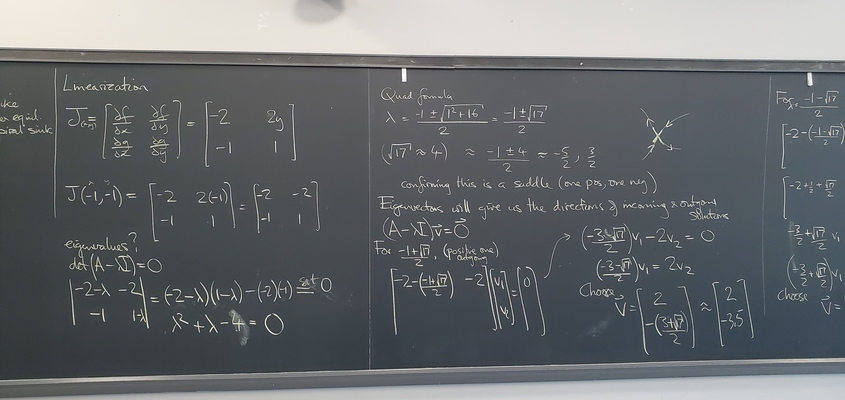 er equil.
spiral sink
Linearization
J(x,y) = [∂f/∂x ∂f/∂y; ∂g/∂x ∂g/∂y] = [-2 2y; -1 1]
J(-1,-1) = [-2 2(-1); -1 1] = [-2 -2; -1 1]
eigenvalues?
det(A-λI)=0
|-2-λ -2; -1 1-λ| = (-2-λ)(1-λ) - (-2)(-1) set= 0
λ² + λ - 4 = 0
Quad formula
λ = (-1 ± √(1²+16))/2 = (-1 ± √17)/2
(√17 ≈ 4) ≈ (-1 ± 4)/2 ≈ -5/2, 3/2
confirming this is a saddle (one pos, one neg)
Eigenvectors will give us the directions of incoming & outgoing
solutions
(A-λI)v⃗ = 0⃗
For (-1+√17)/2, (positive one) outgoing
[-2-((-1+√17)/2) -2] [v₁; v₂] = [0]
((-3-√17)/2)v₁ - 2v₂ = 0
((-3-√17)/2)v₁ = 2v₂
Choose
v⃗ = [2; -((3+√17)/2)] ≈ [2; -3.5]
For (-1-√17)/2
[-2-((-1-√17)/2)
[-2+1/2+√17/2
(-3/2+√17/2)v₁
(-3/2+√17/2)v₁
choose v⃗ =